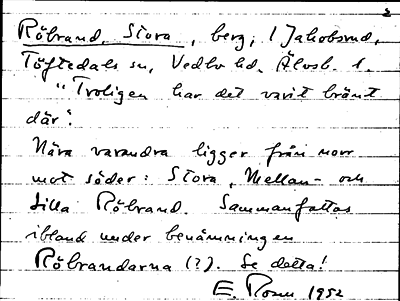 Röbrand, Stora, berg, i Jakobsrud,
Töftedals sn, Vedbo hd. Älvsb. l.
"Troligen har det varit bränt
där".
Nära varandra ligger från norr
mot söder: Stora, Mellan- och
Lilla Röbrand. Sammanfattas
ibland under benämningen
Röbrandarna (?). Se detta!
E. Rosen 1952